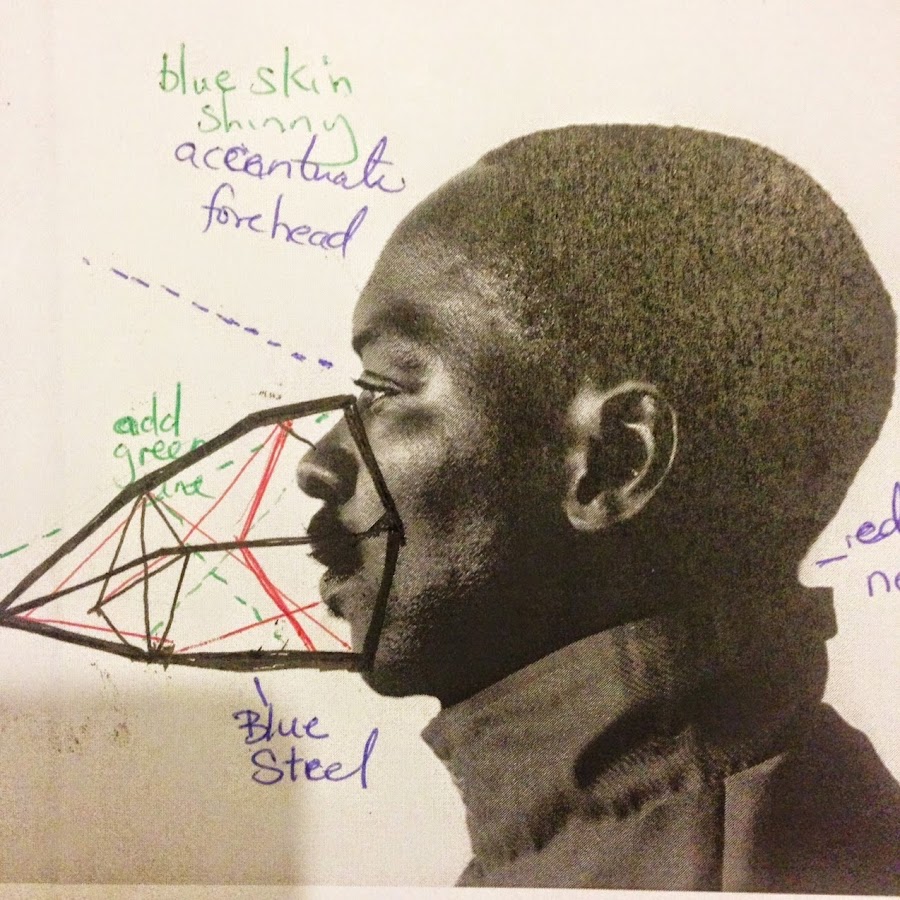 blue skin
shinny
accentuate
forehead
add
green
line
red
ne
Blue
Steel